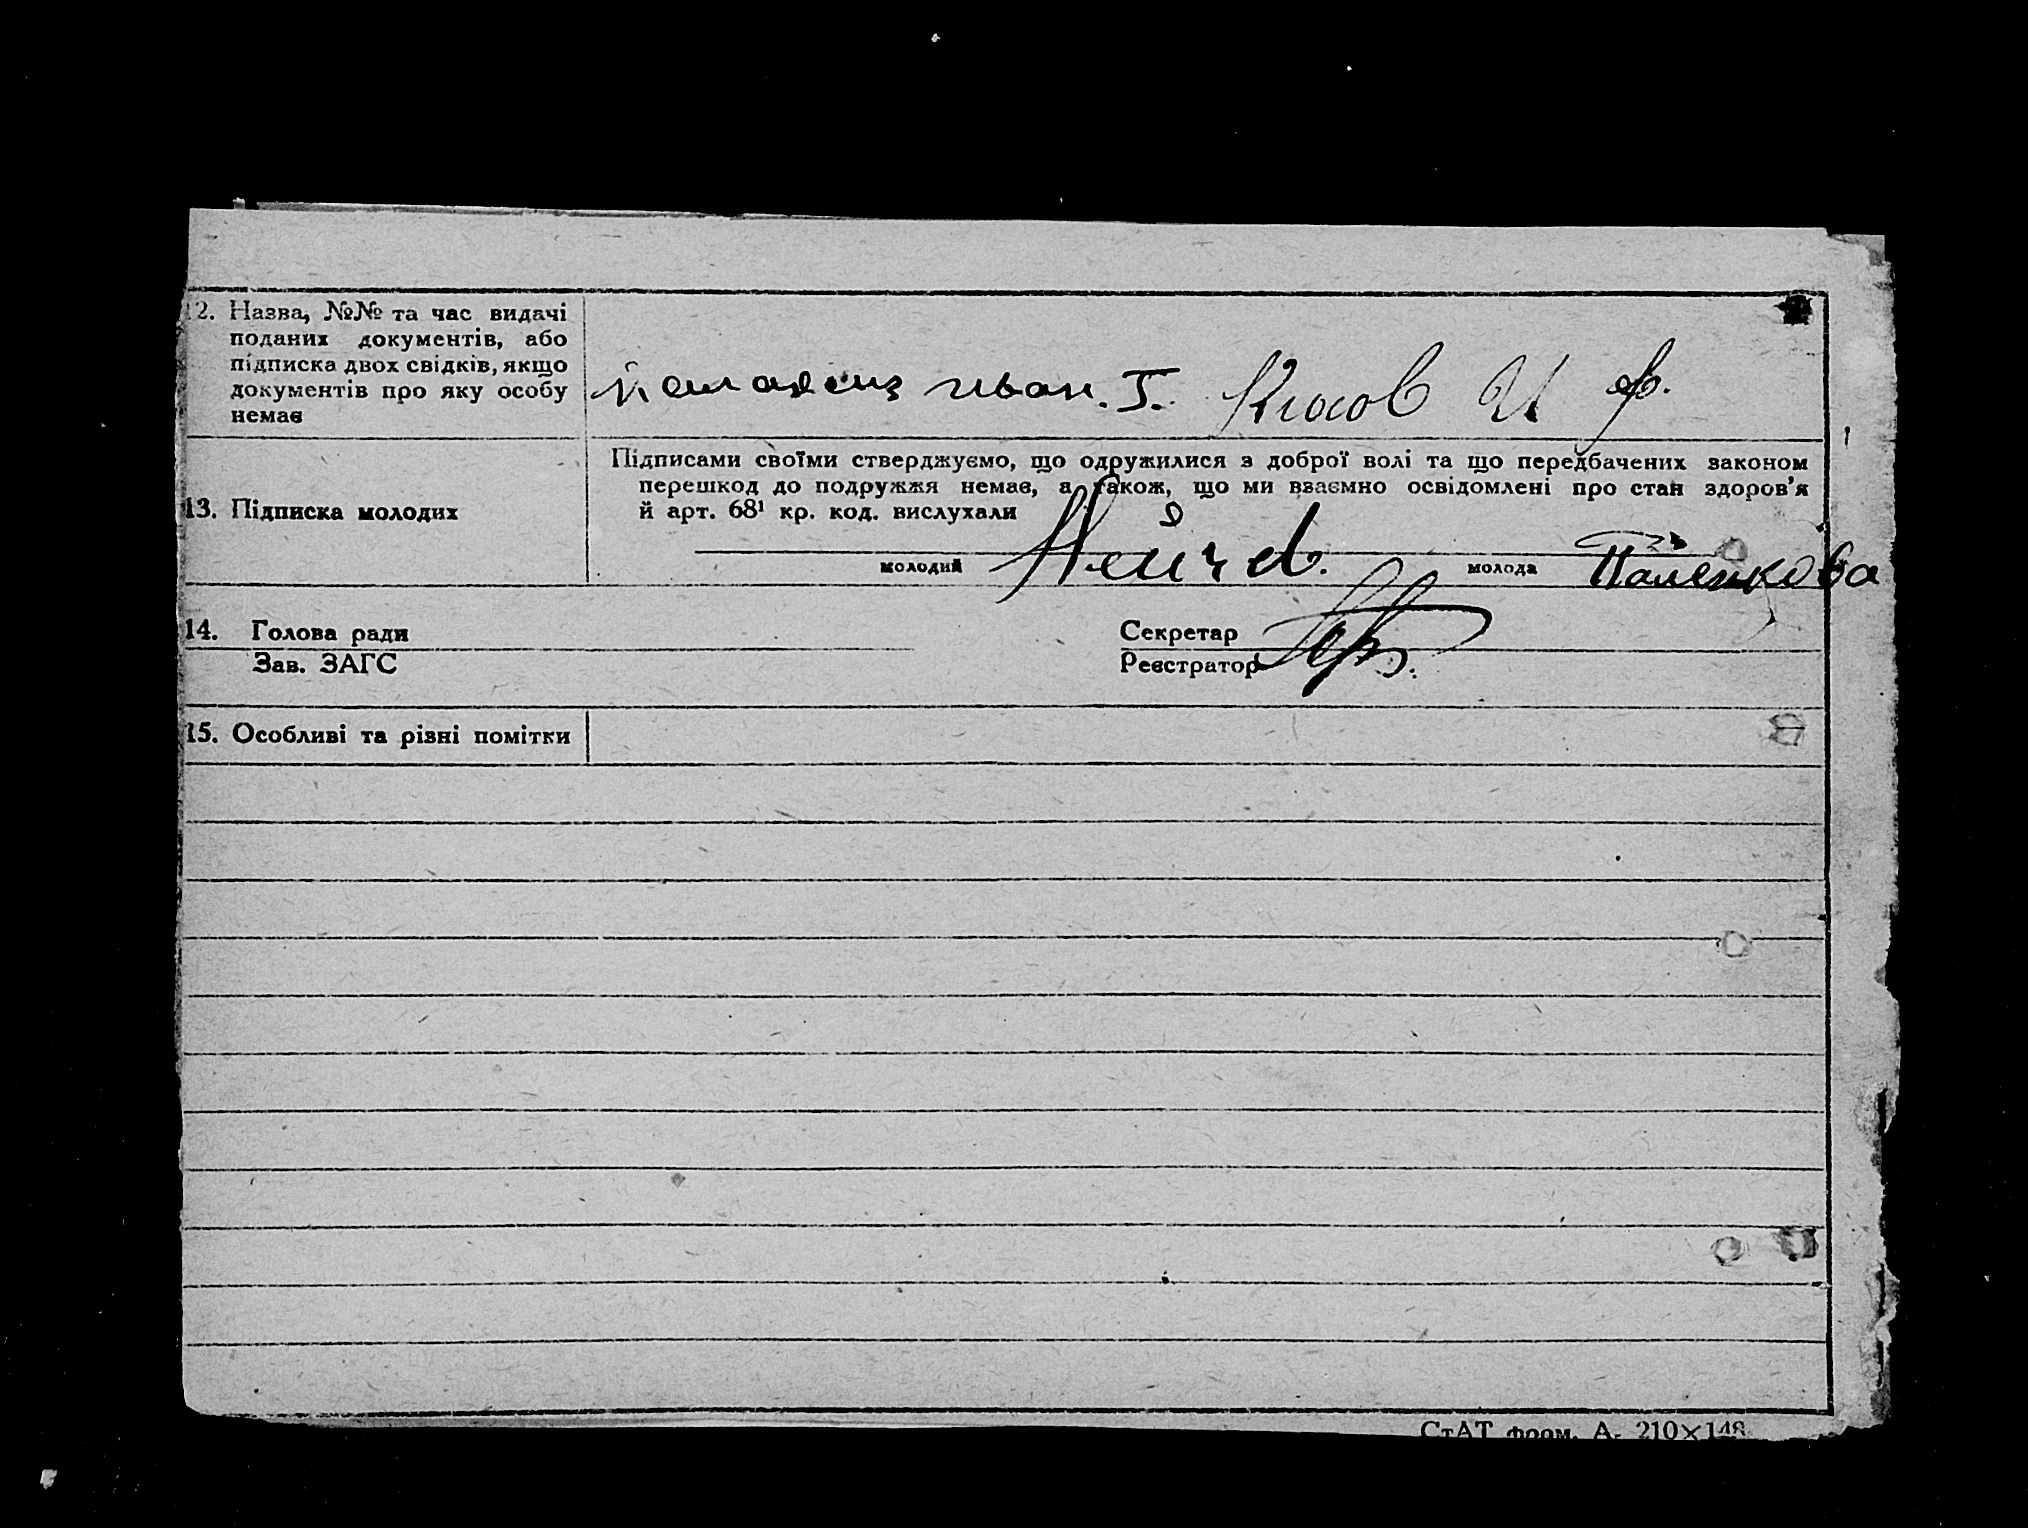 12. Назва, №№ та час видачі
поданих документів, або
підписка двох свідків, якщо
документів про яку особу
немає
Иван. Г. Клюсов И Ф.
Підписами своїми стверджуємо, що одружилися з доброї волі та що передбачених законом
перешкод до подружжя немає, а також, що ми взаємно освідомлені про стан здоров'я
й арт. 68¹ кр. код. вислухали
13. Підписка молодих
молодий
молода Паленкова
14. Голова ради Секретар
Зав. ЗАГС Реєстратор
15. Особливі та різні помітки
СтАТ форм. А- 210×148